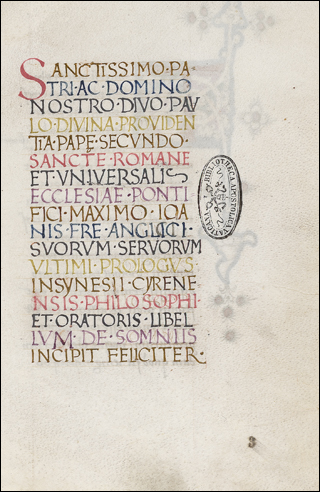 SANCTISSIMO·PA
TRI·AC·DOMINO
NOSTRO·DIVO·PAV
LO·DIVINA·PROVIDEN
TIA·PAPE·SECVNDO·
SANCTE·ROMANE
ET·VNIVERSALIS
ECCLESIAE·PONTI
FICI·MAXIMO·IOA
NIS·FRE·ANGLICI·
SVORVM·SERVORVM
VLTIMI·PROLOGVS·
IN·SYNESII·CYRENE
NSIS·PHILOSOPHI·
ET·ORATORIS·LIBEL
LVM·DE·SOMNIIS
INCIPIT·FELICITER·
BIBLIOTHECA APOSTOLICA VATICANA